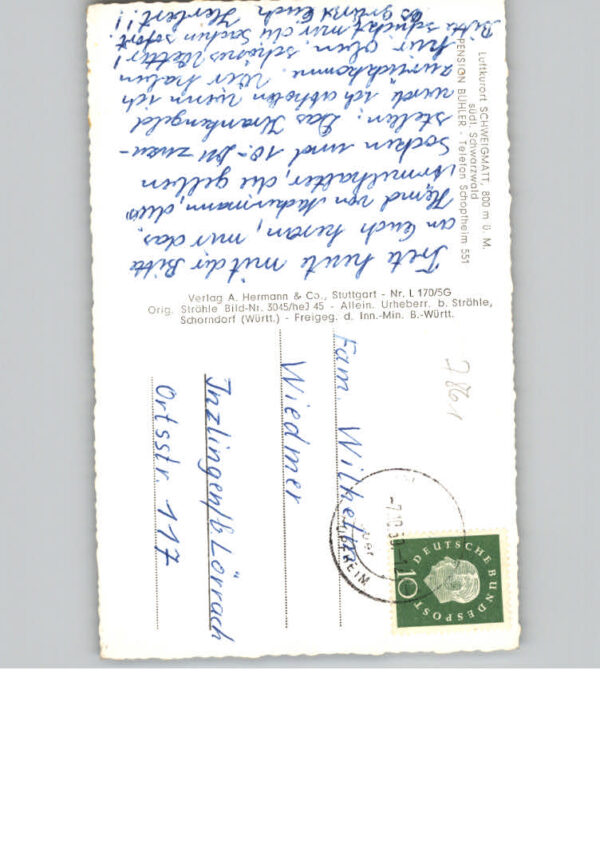 Luftkurort SCHWEIGMATT, 800 m ü. M.
südl. Schwarzwald
PENSION BÜHLER - Telefon Schopfheim 551
Trete heute mit der Bitte
an Euch heran, mir das
Hemd von Neckermann, die
Ärmelhalter, die gelben
Socken und 10.- DM zuzu-
stellen. Das Krankengeld
werde ich abholen wenn ich
zurückkomme. Wir haben
hier oben schönes Wetter!
Bitte schickt mir die Sachen sofort.
Es grüßt Euch Herbert!!
Verlag A. Hermann & Co., Stuttgart - Nr. L 170/5G
Orig. Strähle Bild-Nr. 3045/heJ 45 - Allein. Urheberr. b. Strähle,
Schorndorf (Württ.) - Freigeg. d. Inn.-Min. B.-Württ.
J 861
Fam. Wilhelm
Wiedmer
Inzlingen/b Lörrach
Ortsstr. 117
DEUTSCHE BUNDESPOST
10